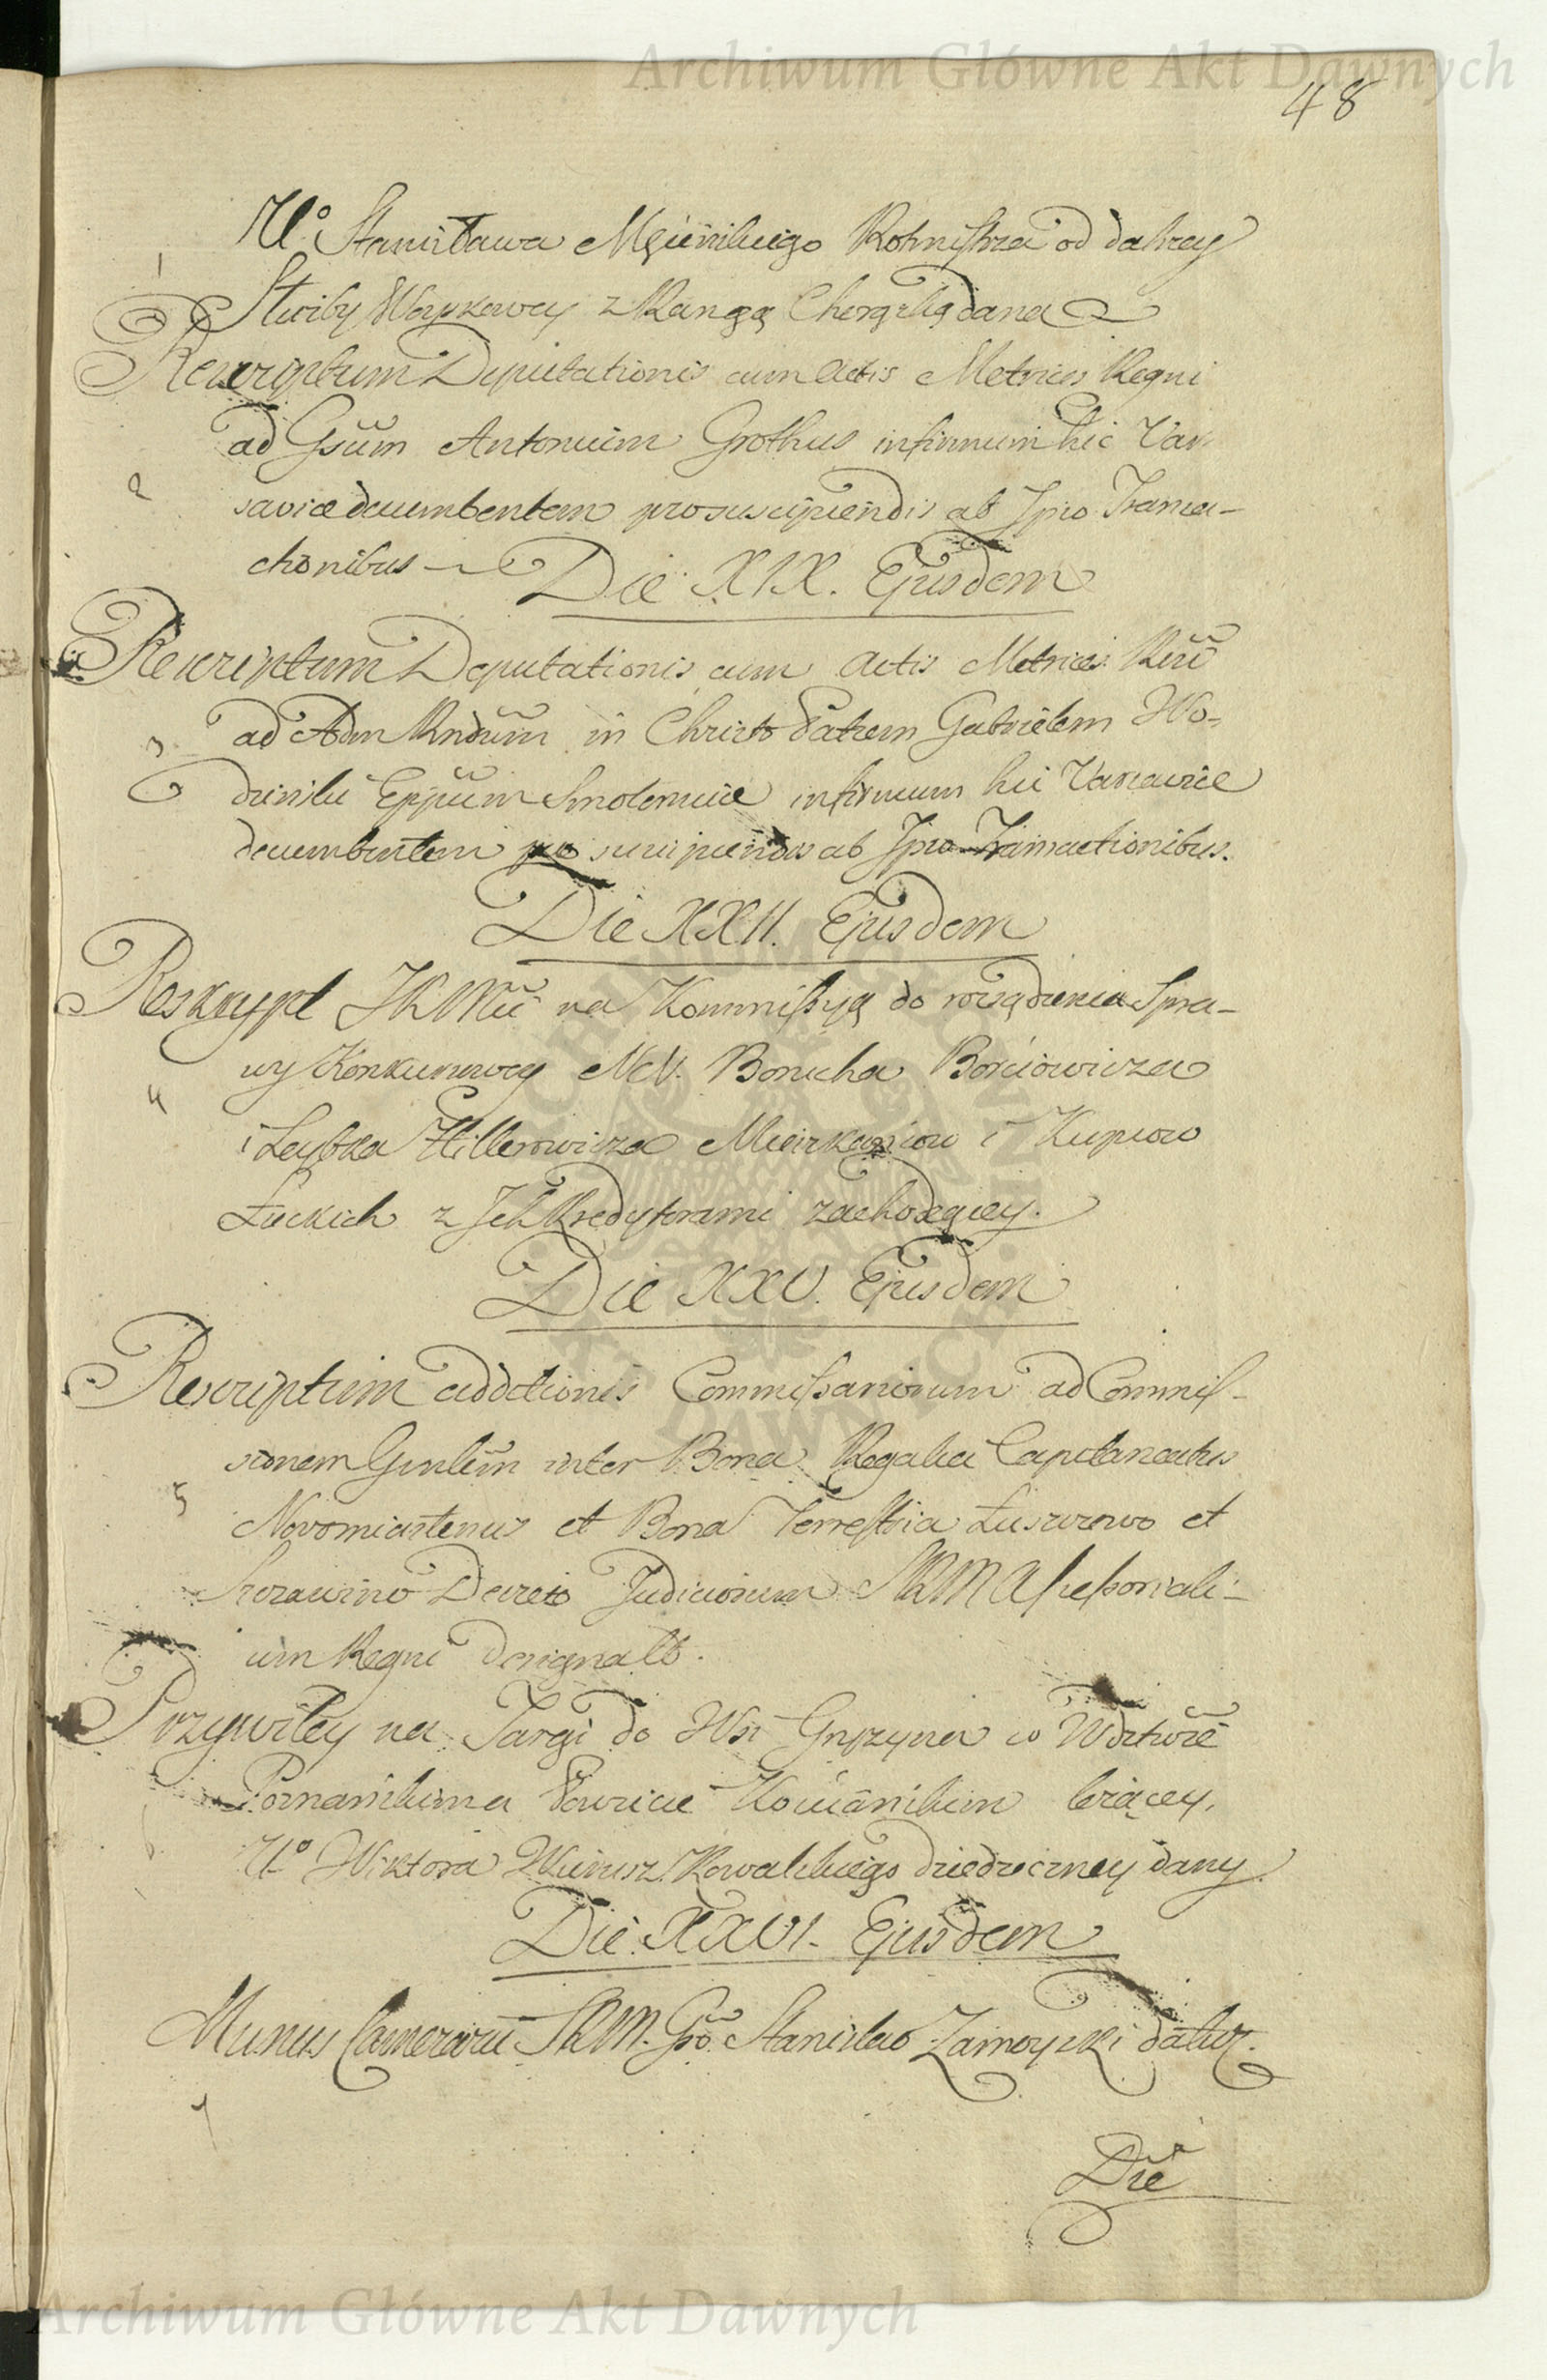 Archiwum Główne Akt Dawnych
48
Ur. Stanisława Męcińskiego Rotmistrza od dalszey
1
Służby Woyskowey z Rangą Chorążską dana
Rescriptum Deputationis cum Actis Metrices Regni
ad Gsum Antonium Grothus infirmum hic Var
2
saviæ decumbentem pro suscipiendis ab Ipso Transa-
ctionibus
Die XIX. Ejusdem
Rescriptum Deputationis cum Actis Metrices Regni
ad Adm Rndum in Christo Patrem Gabrielem Wo-
3
dzinski Eppum Smolensciæ infirmum hic Varsaviæ
decumbentem pro suscipiendis ab Ipso Transactionibus.
Die XXII. Ejusdem
Reskrypt JKMci na Kommissyą do rozsądzenia Spra-
wy Konkursowey NN. Borucha Boruchowicza
4
i Leybka Hillerowicza Mieszkańcow i Kupcow
Łuckich z Ich Kredytorami zachodzącey.
Die XXV. Ejusdem
Rescriptum additionis Commissariorum ad Commis-
sionem Gnlem inter Bona Regalia Capitaneatus
5
Novomiastensis et Bona Terrestria et
Decreto Judiciorum SRM Assessoriali-
um Regni designatt.
Przywiley na Targi do Wsi Gryzyna w Wdztwie
Poznanskim a Powiecie Kościanskim leżącey,
6
Ur. Wiktora Wierusz Kowalskiego dziedziczney dany.
Die XXVI. Ejusdem
Munus Camerarii SRM. Gso Stanislao Zamoyski datur.
7
Die
Archiwum Główne Akt Dawnych